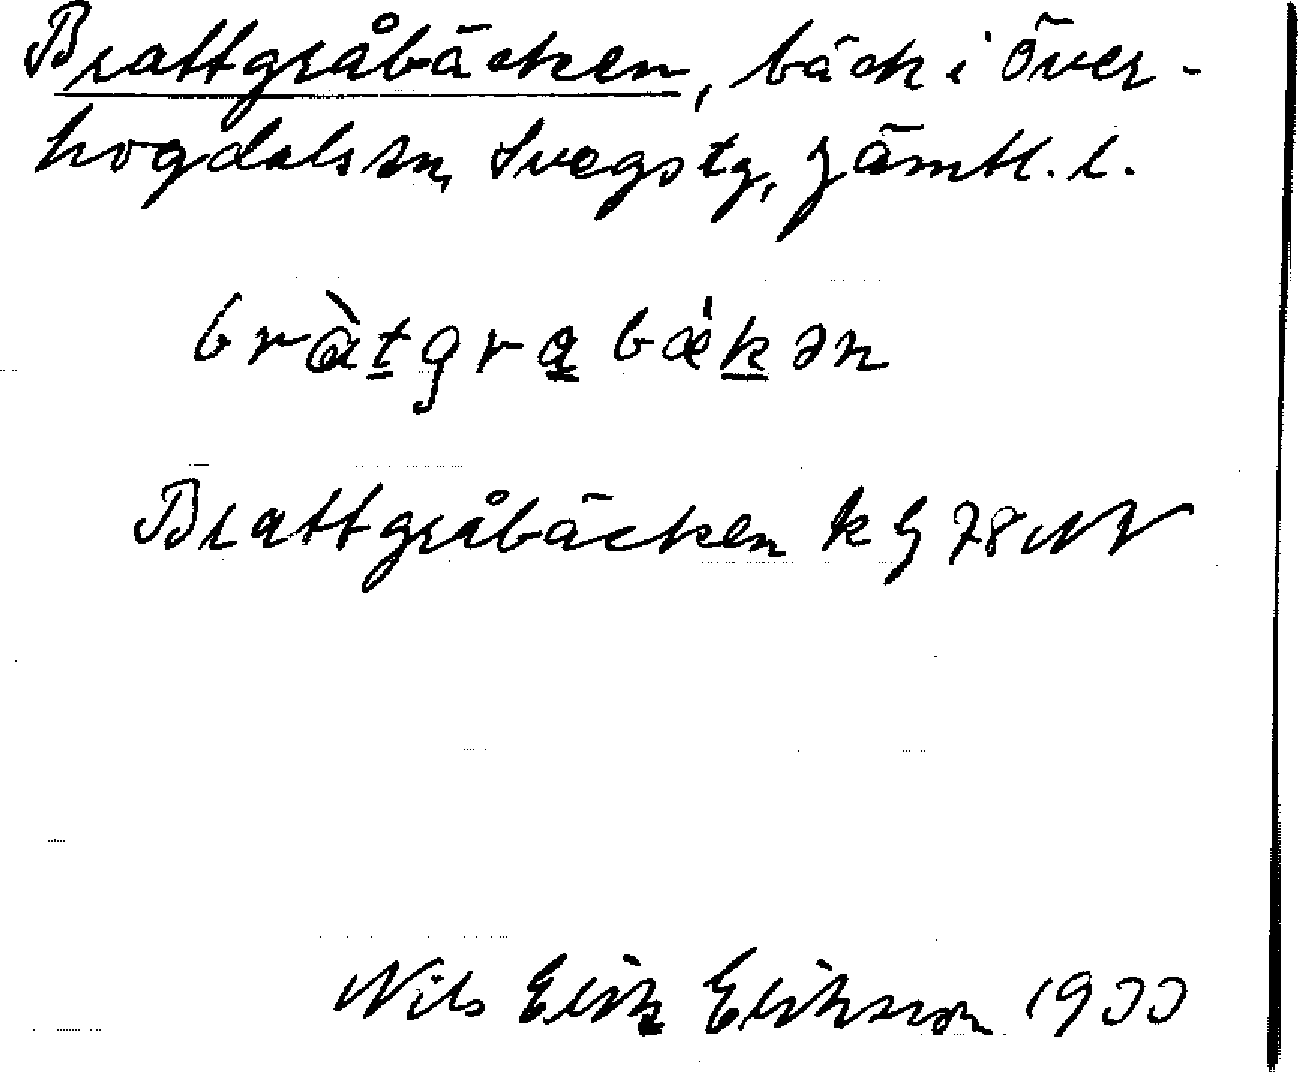 Brattgråbäcken, bäck i Över-
hogdals sn, Svegs tg, Jämtl. l.
bràtgrabǽkən
Brattgråbäcken k G 78 NV
Nils Erik Erikson 1933